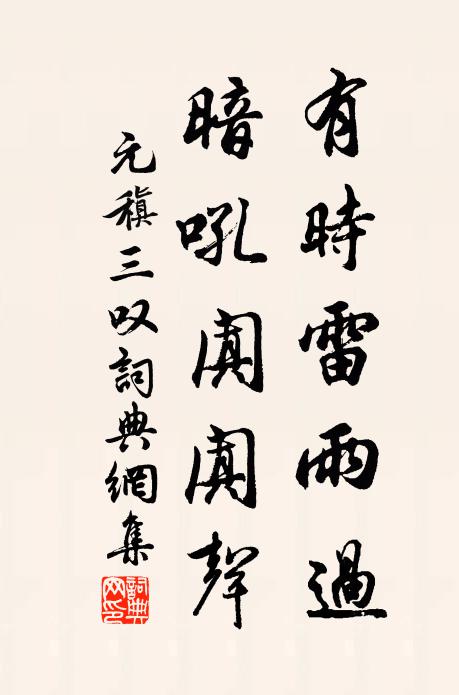 有時雷雨過
暗吼闐闐聲
元稹三叹詞典網集
詞典网印